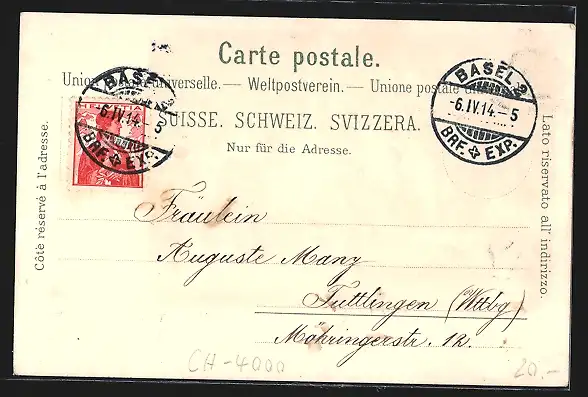 Carte postale.
Union postale universelle. — Weltpostverein. — Unione postale
SUISSE. SCHWEIZ. SVIZZERA.
Nur für die Adresse.
Côté réservé à l'adresse.
Lato riservato all' indirizzo.
HELVETIA
BASEL 2
-6.IV.14.-5
BRF. EXP.
BASEL 2
-6.IV.14.-5
BRF. EXP.
Fräulein
Auguste Manz
Tuttlingen (Wttbg)
Möhringerstr. 12.
CH-4000
20.-